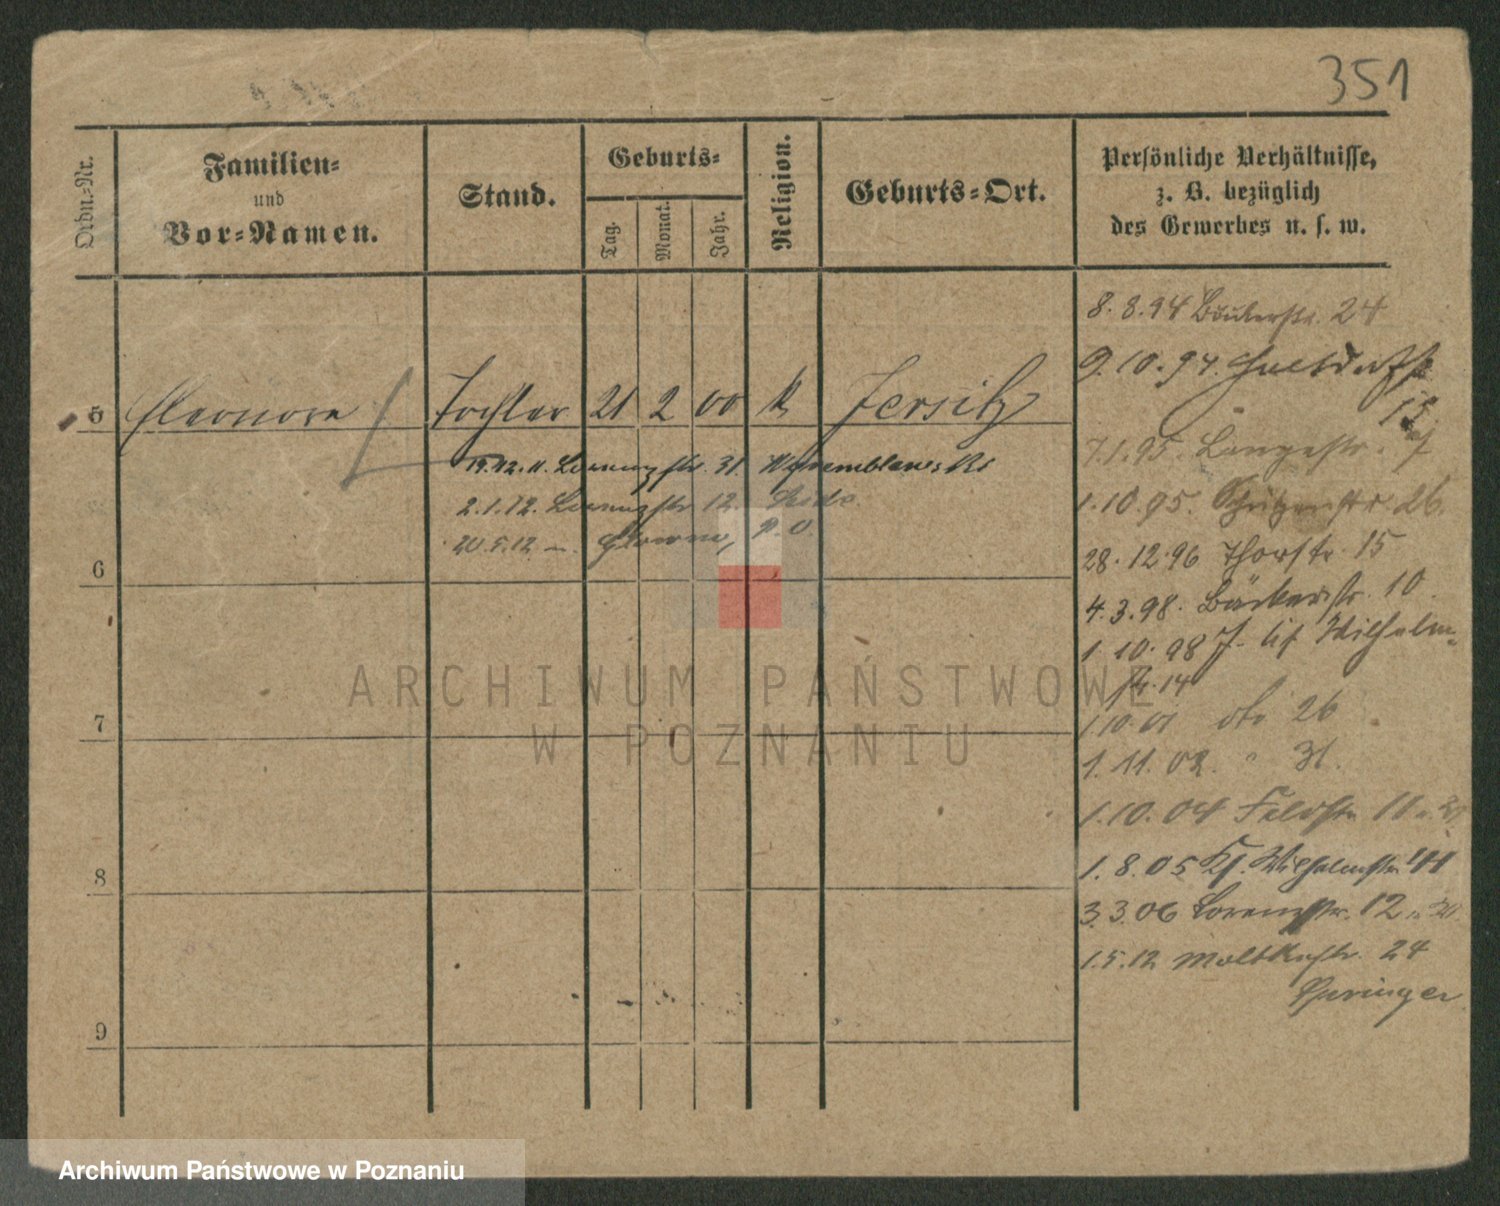 351
Ordn.-Nr.
Familien-
und
Vor-Namen.
Stand.
Geburts-
Tag.
Monat.
Jahr.
Religion.
Geburts-Ort.
Persönliche Verhältnisse,
z. B. bezüglich
des Gewerbes u. s. w.
5 Eleonore Tochter 21 2 00 k Jersitz
19.12.11. Lorenzstr. 31
2.1.12. Lorenzstr 12.
20.5.12 P. O.
6
7
8
9
8.8.94 Bäckerstr. 24
9.10.94.
15
7.1.95. Langestr. 7
1.10.95. Schützenstr 26.
28.12.96 Thorstr. 15
4.3.98. Bäckerstr. 10.
1.10.98 Wilhelm-
str. 14
1.10.01 dto 26
1.11.02. " 31.
1.10.04 Feldstr. 11
1.8.05 Kl. Wilhelmstr
3.3.06 Lorenzstr. 12
1.5.12 Moltkestr. 24
Springer
ARCHIWUM PAŃSTWOWE
W POZNANIU
Archiwum Państwowe w Poznaniu